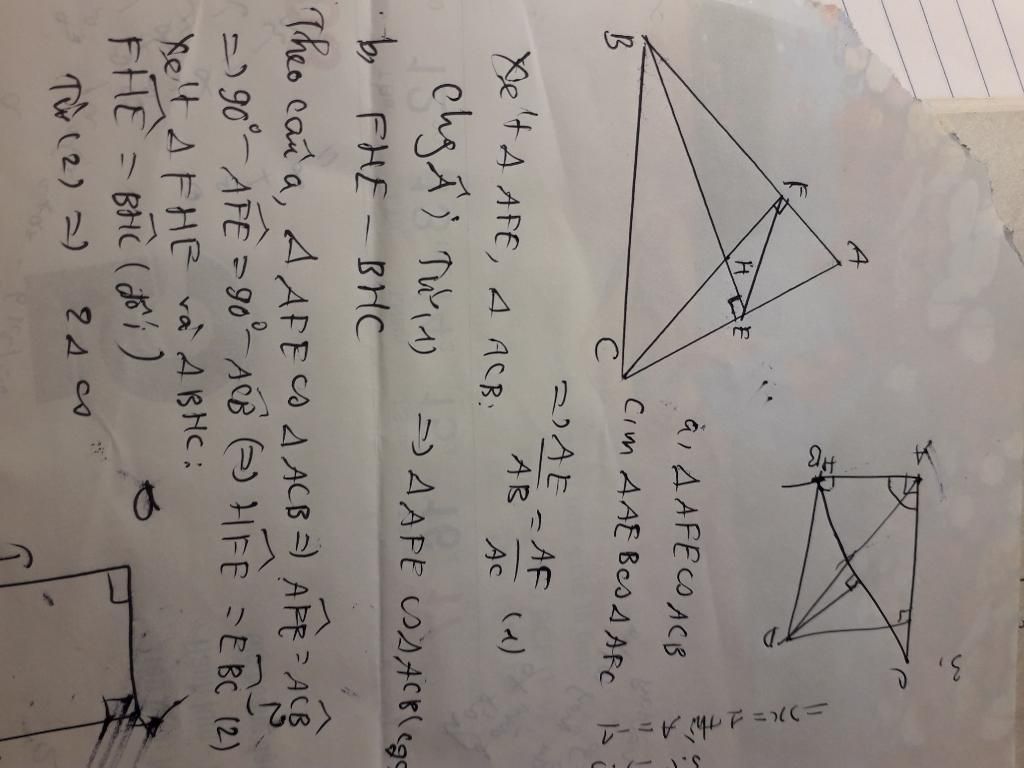 B
F
A
H
E
C
a, Δ AFE ∽ ACB
Cm Δ AEB ∽ Δ AFC
=) AE/AB = AF/AC (1)
Xét Δ AFE, Δ ACB:
Chg Â; Từ (1) =) Δ AFE ∽ Δ ACB (cgc
b FHE - BHC
Theo câu a, Δ AFE ∽ Δ ACB =) AFE = ACB
=) 90° - AFE = 90° - ACB (=) HFE = EBC (2)
Xét Δ FHE và Δ BHC:
FHE = BHC (đđ)
Từ (2) =) 2 Δ ∽